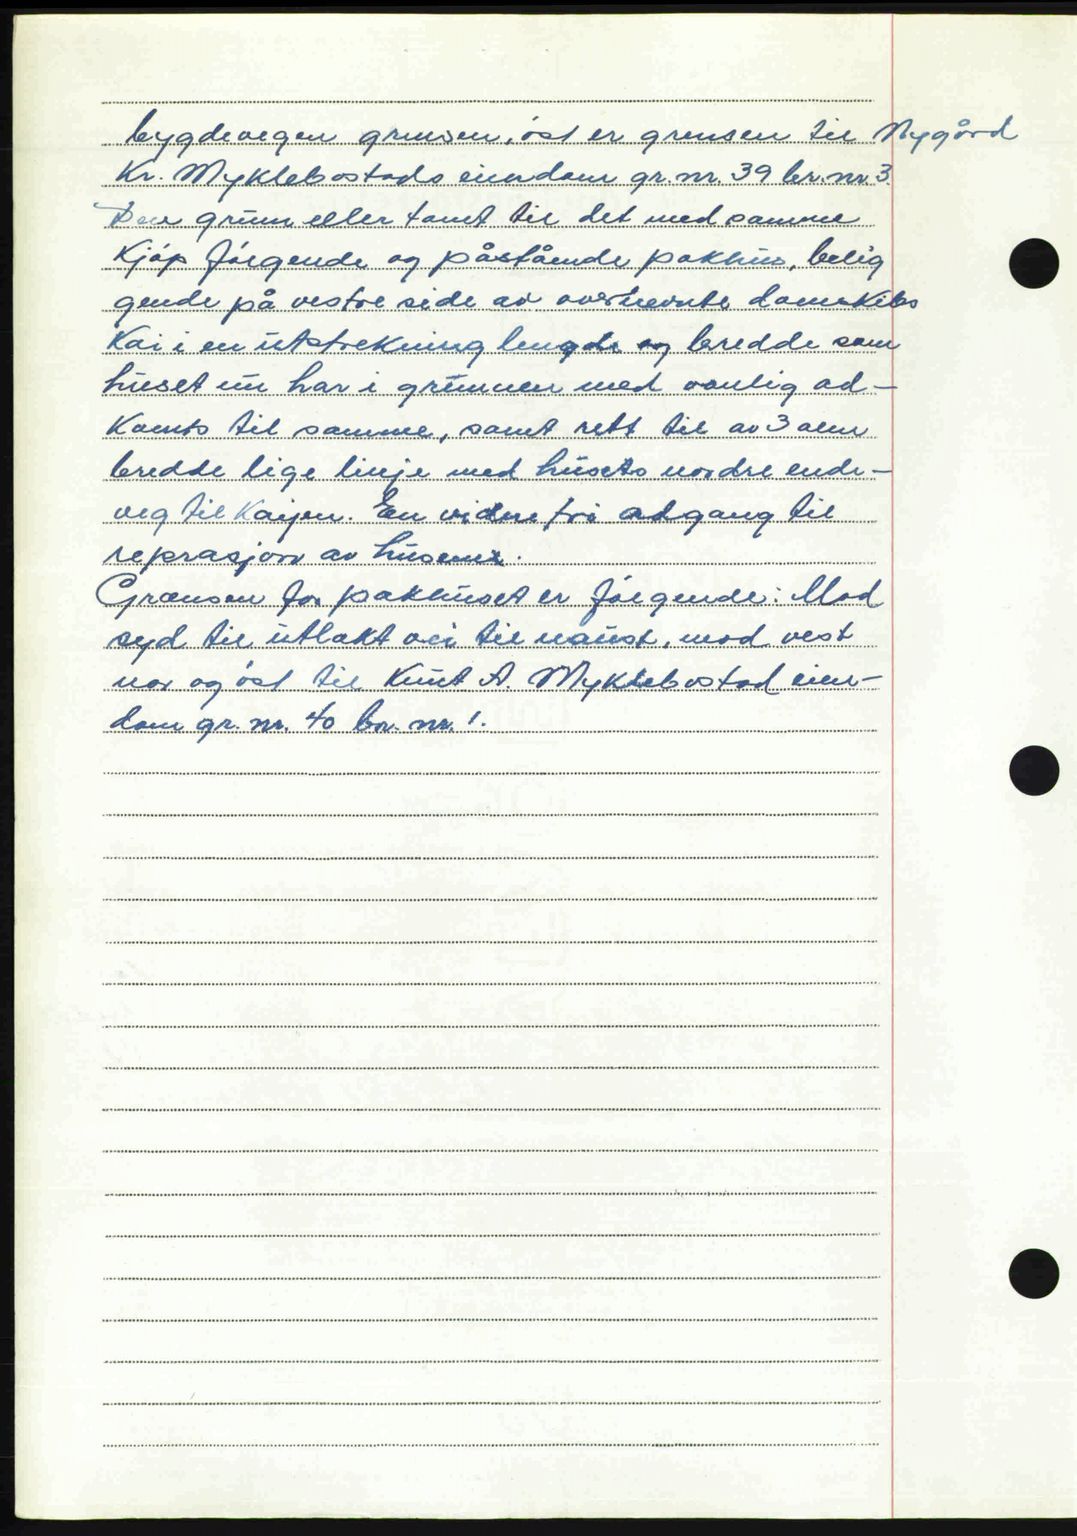 bygdevegen grensen, öst er grensen til Nygård
Kr. Myklebostads eiendom gr. nr. 39 br. nr. 3.
Den grunn eller tomt til det med samme
Kjöp fölgende og påstående pakhus, belig
gende på vestre side av overnevnte damskibs
Kai i en utstrekning lengde og bredde som
huset nu har i grunnen med vanlig ad-
komst til samme, samt rett til av 3 alen
bredde lige linje med husets nordre ende-
veg til Kaijen. En videre fri adgang til
reprasjon av husene.
Grænsen for pakhuset er fölgende: Mod
syd til utlakt vei til naust, mod vest
nor og öst til Knut A. Myklebostad eien-
dom gr. nr. 40 br. nr. 1.